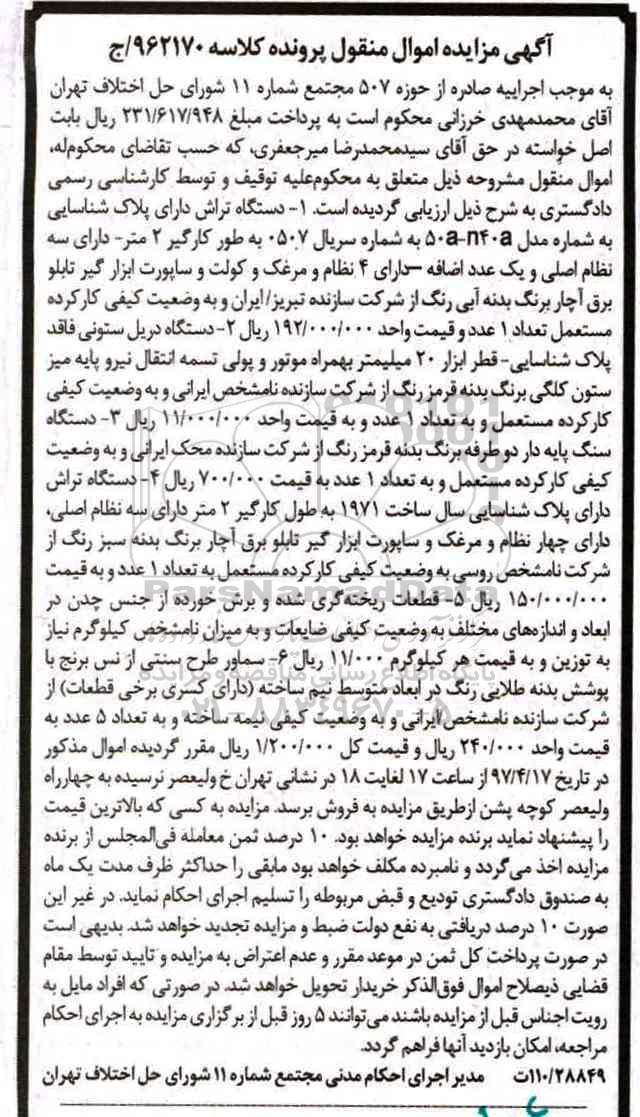 آگهی مزایده اموال منقول پرونده کلاسه ۹۶۲۱۷۰/ج
به موجب اجراییه صادره از حوزه ۵۰۷ مجتمع شماره ۱۱ شورای حل اختلاف تهران
آقای محمدمهدی خرزانی محکوم است به پرداخت مبلغ ۲۳۱/۶۱۷/۹۴۸ ریال بابت
اصل خواسته در حق آقای سیدمحمدرضا میرجعفری، که حسب تقاضای محکوم‌له،
اموال منقول مشروحه ذیل متعلق به محکوم‌علیه توقیف و توسط کارشناسی رسمی
دادگستری به شرح ذیل ارزیابی گردیده است. ۱- دستگاه تراش دارای پلاک شناسایی
به شماره مدل ۵۰a-n۴۰a به شماره سریال ۰۵۰۷ به طور کارگیر ۲ متر- دارای سه
نظام اصلی و یک عدد اضافه –دارای ۴ نظام و مرغک و کولت و ساپورت ابزار گیر تابلو
برق آچار برنگ بدنه آبی رنگ از شرکت سازنده تبریز/ ایران و به وضعیت کیفی کارکرده
مستعمل تعداد ۱ عدد و قیمت واحد ۱۹۲/۰۰۰/۰۰۰ ریال ۲- دستگاه دریل ستونی فاقد
پلاک شناسایی- قطر ابزار ۲۰ میلیمتر بهمراه موتور و پولی تسمه انتقال نیرو پایه میز
ستون کلگی برنگ بدنه قرمز رنگ از شرکت سازنده نامشخص ایرانی و به وضعیت کیفی
کارکرده مستعمل و به تعداد ۱ عدد و به قیمت واحد ۱۱/۰۰۰/۰۰۰ ریال ۳- دستگاه
سنگ پایه دار دو طرفه برنگ بدنه قرمز رنگ از شرکت سازنده محک ایرانی و به وضعیت
کیفی کارکرده مستعمل و به تعداد ۱ عدد به قیمت ۷۰۰/۰۰۰ ریال ۴- دستگاه تراش
دارای پلاک شناسایی سال ساخت ۱۹۷۱ به طول کارگیر ۲ متر دارای سه نظام اصلی،
دارای چهار نظام و مرغک و ساپورت ابزار گیر تابلو برق آچار برنگ بدنه سبز رنگ از
شرکت نامشخص روسی به وضعیت کیفی کارکرده مستعمل به تعداد ۱ عدد و به قیمت
۱۵۰/۰۰۰/۰۰۰ ریال ۵- قطعات ریخته‌گری شده و برش خورده از جنس چدن در
ابعاد و اندازه‌های مختلف به وضعیت کیفی ضایعات و به میزان نامشخص کیلوگرم نیاز
به توزین و به قیمت هر کیلوگرم ۱۱/۰۰۰ ریال ۶- سماور طرح سنتی از نس برنج با
پوشش بدنه طلایی رنگ در ابعاد متوسط نیم ساخته (دارای کسری برخی قطعات) از
شرکت سازنده نامشخص ایرانی و به وضعیت کیفی نیمه ساخته و به تعداد ۵ عدد به
قیمت واحد ۲۴۰/۰۰۰ ریال و قیمت کل ۱/۲۰۰/۰۰۰ ریال مقرر گردیده اموال مذکور
در تاریخ ۹۷/۴/۱۷ از ساعت ۱۷ لغایت ۱۸ در نشانی تهران خ ولیعصر نرسیده به چهارراه
ولیعصر کوچه پشن ازطریق مزایده به فروش برسد. مزایده به کسی که بالاترین قیمت
را پیشنهاد نماید برنده مزایده خواهد بود. ۱۰ درصد ثمن معامله فی‌المجلس از برنده
مزایده اخذ می‌گردد و نامبرده مکلف خواهد بود مابقی را حداکثر ظرف مدت یک ماه
به صندوق دادگستری تودیع و قبض مربوطه را تسلیم اجرای احکام نماید. در غیر این
صورت ۱۰ درصد دریافتی به نفع دولت ضبط و مزایده تجدید خواهد شد. بدیهی است
در صورت پرداخت کل ثمن در موعد مقرر و عدم اعتراض به مزایده و تایید توسط مقام
قضایی ذیصلاح اموال فوق‌الذکر خریدار تحویل خواهد شد. در صورتی که افراد مایل به
رویت اجناس قبل از مزایده باشند می‌توانند ۵ روز قبل از برگزاری مزایده به اجرای احکام
مراجعه، امکان بازدید آنها فراهم گردد.
۱۱۰/۲۸۸۴۹ت مدیر اجرای احکام مدنی مجتمع شماره ۱۱ شورای حل اختلاف تهران
ParsNamadData
پایگاه اطلاع رسانی مناقصه و مزایده
۰۲۱-۸۸۳۴۹۶۷۰-۵